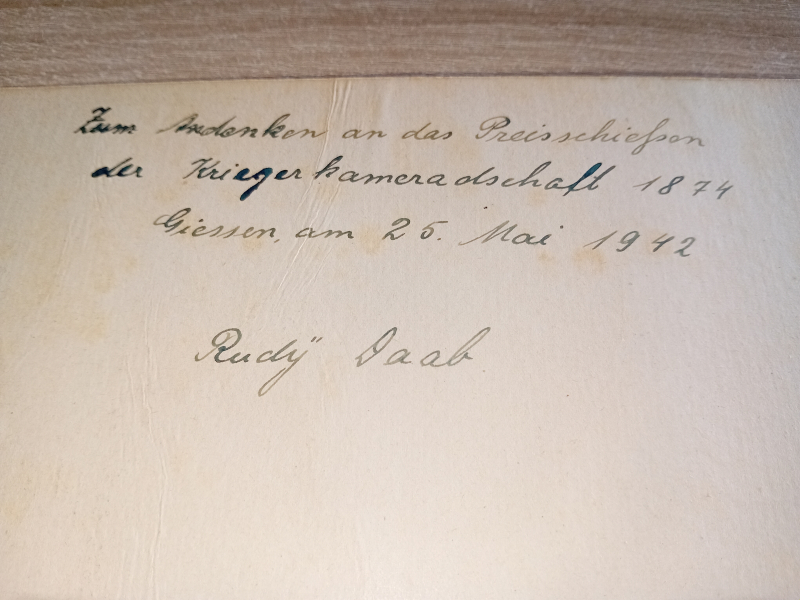 Zum Andenken an das Preisschießen
der Kriegerkameradschaft 1874
Giessen, am 25. Mai 1942
Rudÿ Daab